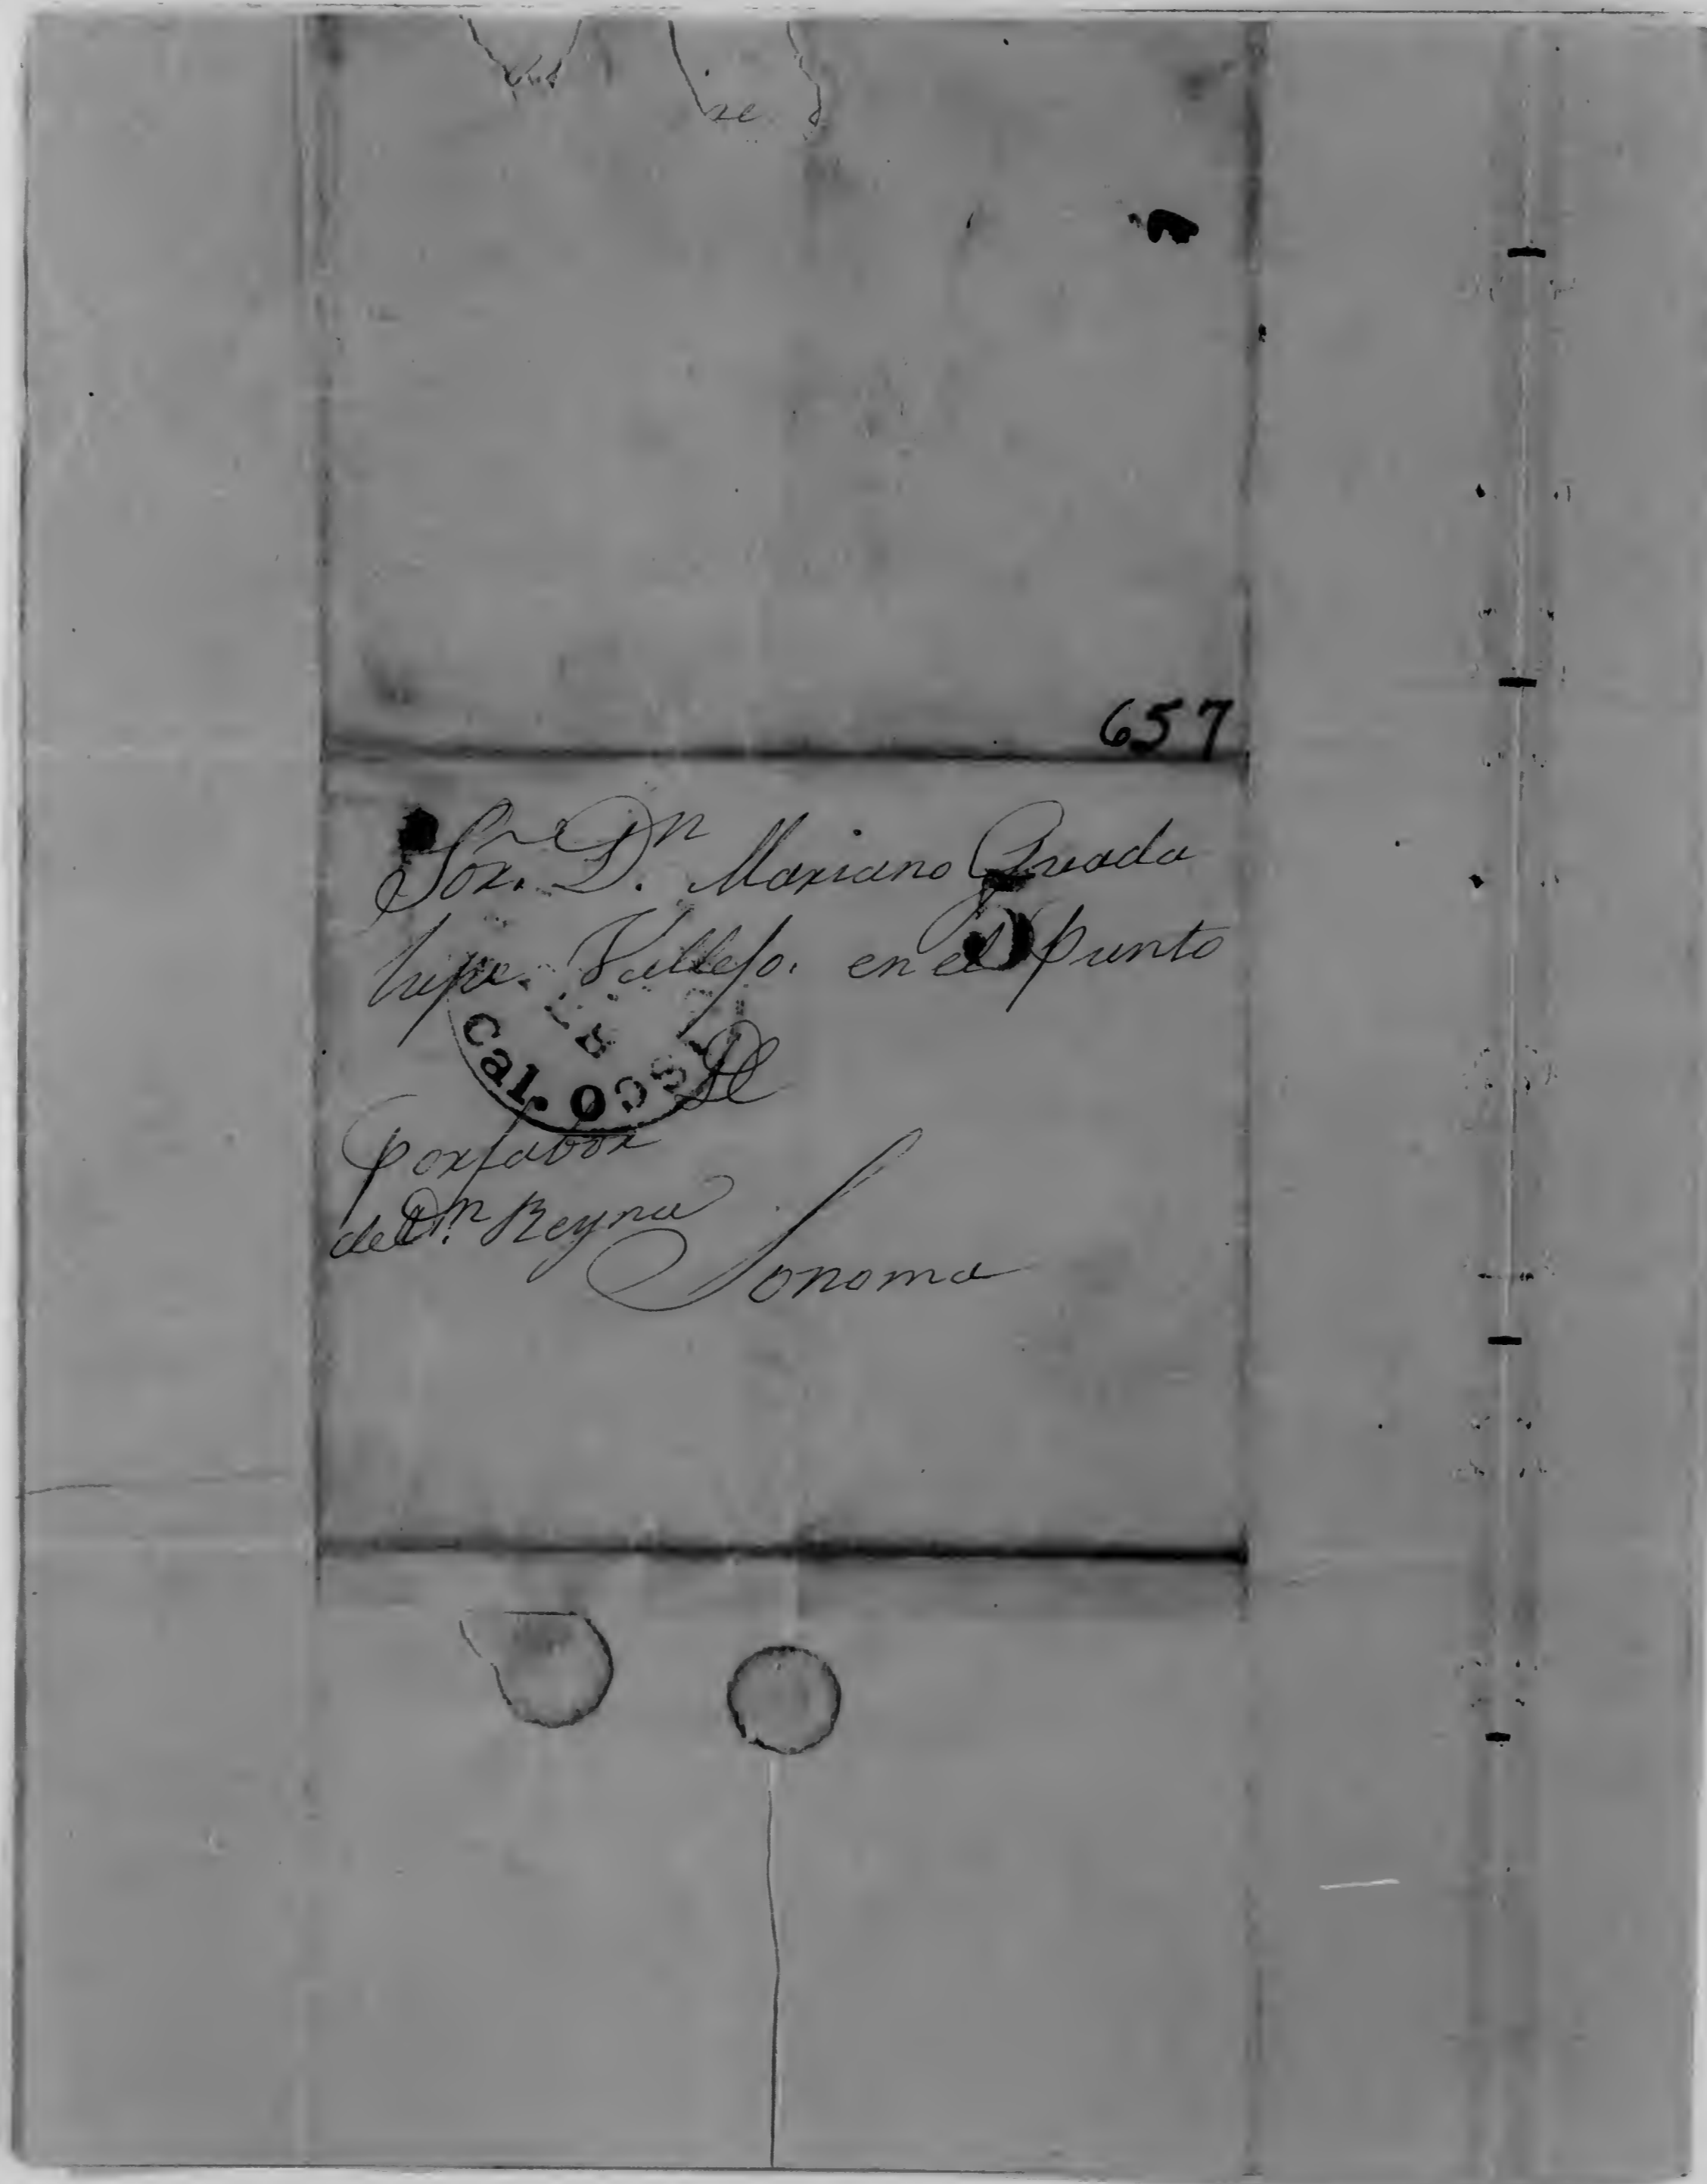 se
657
Sōr. Dn. Mariano Guada
lupe. Vallejo. en el punto
De
Cal.
por fabor
de Dn. Reyna
Sonoma